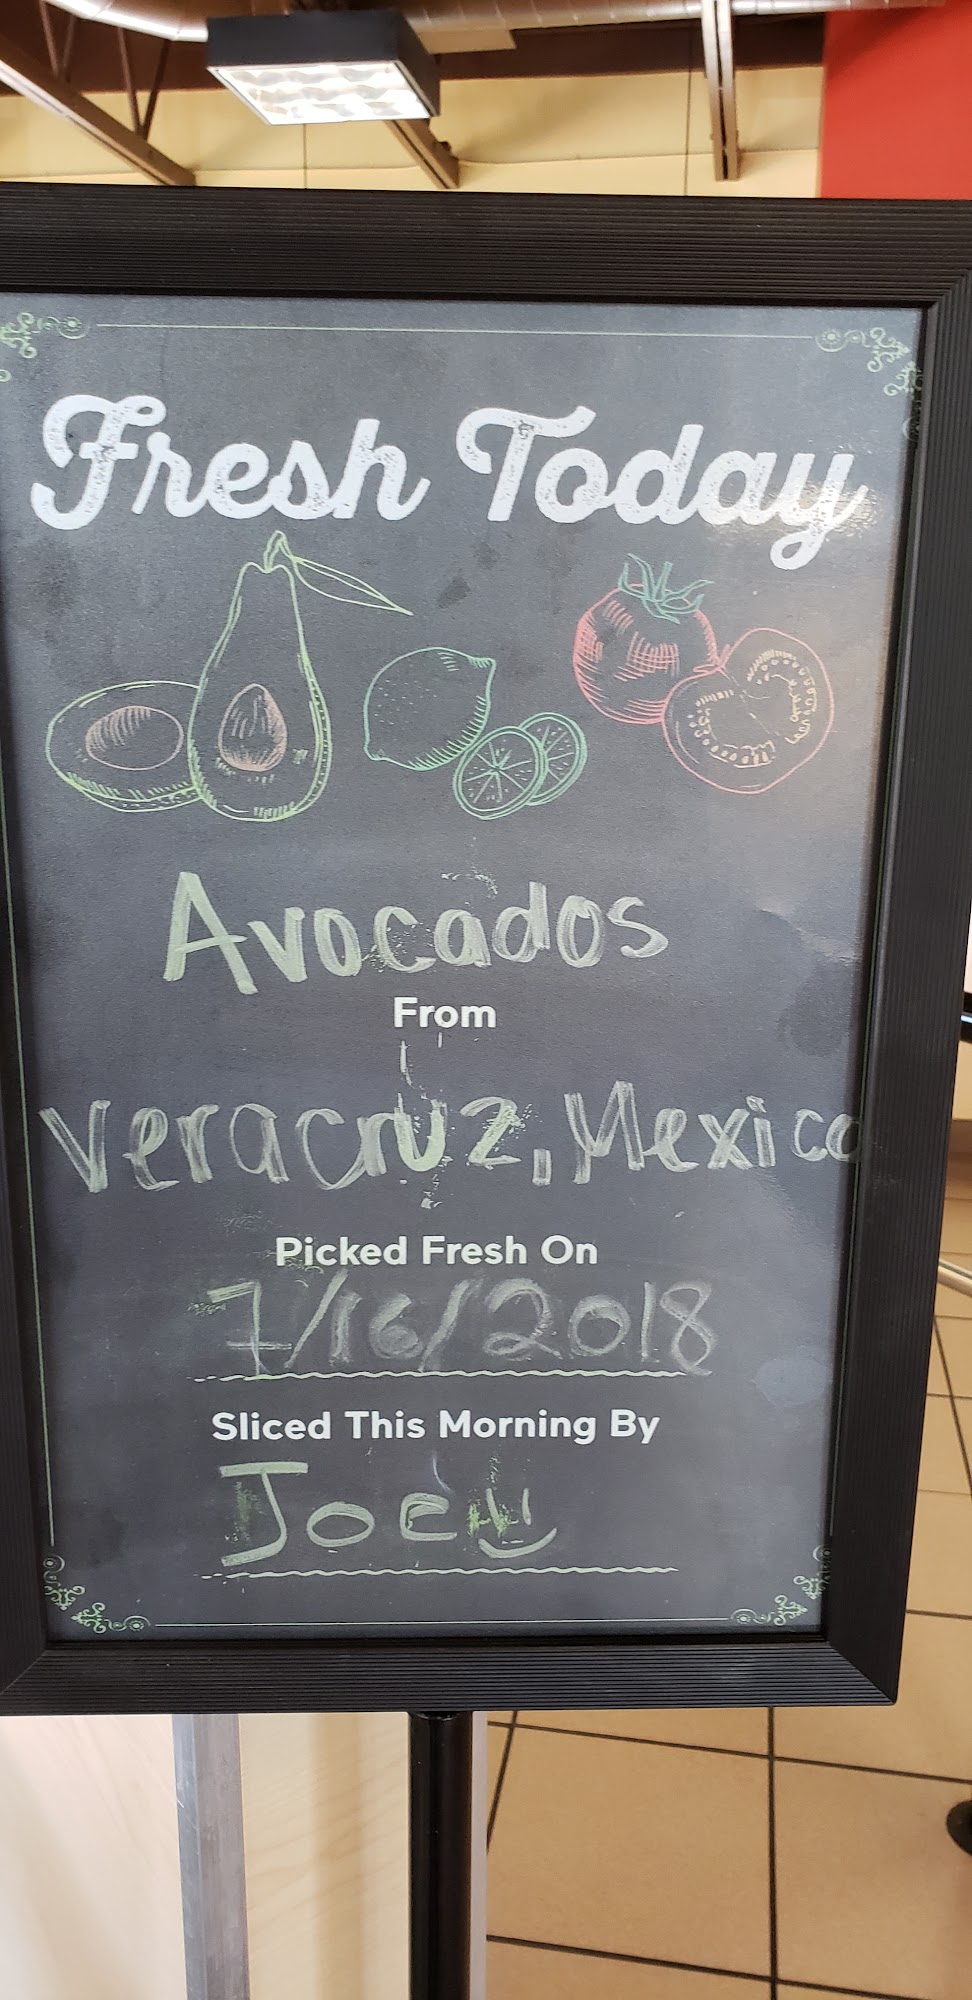 Fresh Today
Avocados
From
Veracruz, Mexico
Picked Fresh On
7/16/2018
Sliced This Morning By
Joey